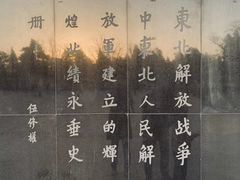 東北解放战爭
中東北人民解
放軍建立的輝
煌业績永垂史
册
伍修權